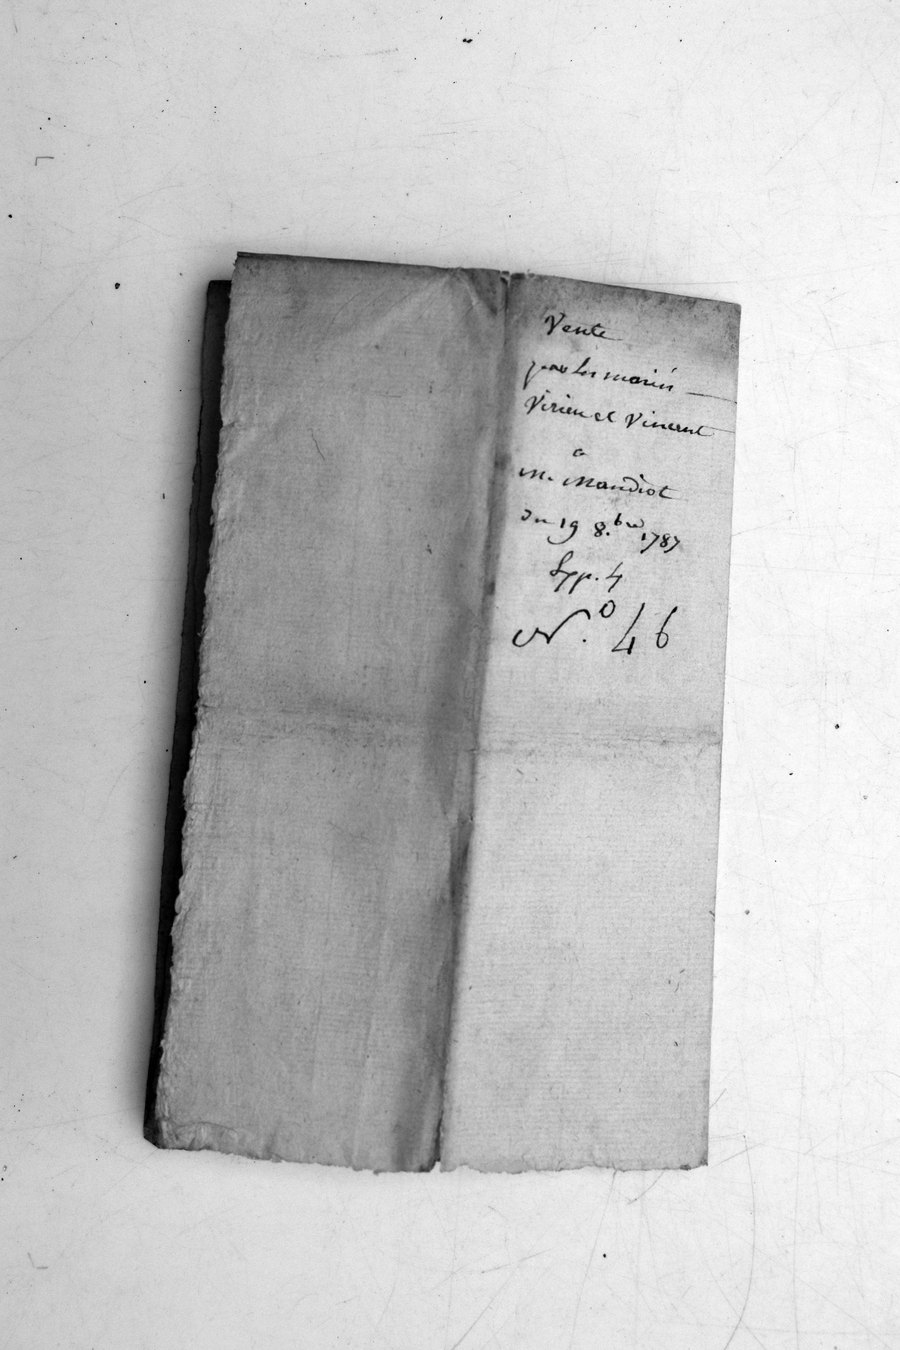 Vente
par les mariés
Virieu et Vincent
a
M. Mandiot
du 19 8.bre 1787
Exp. 4
N.º 46